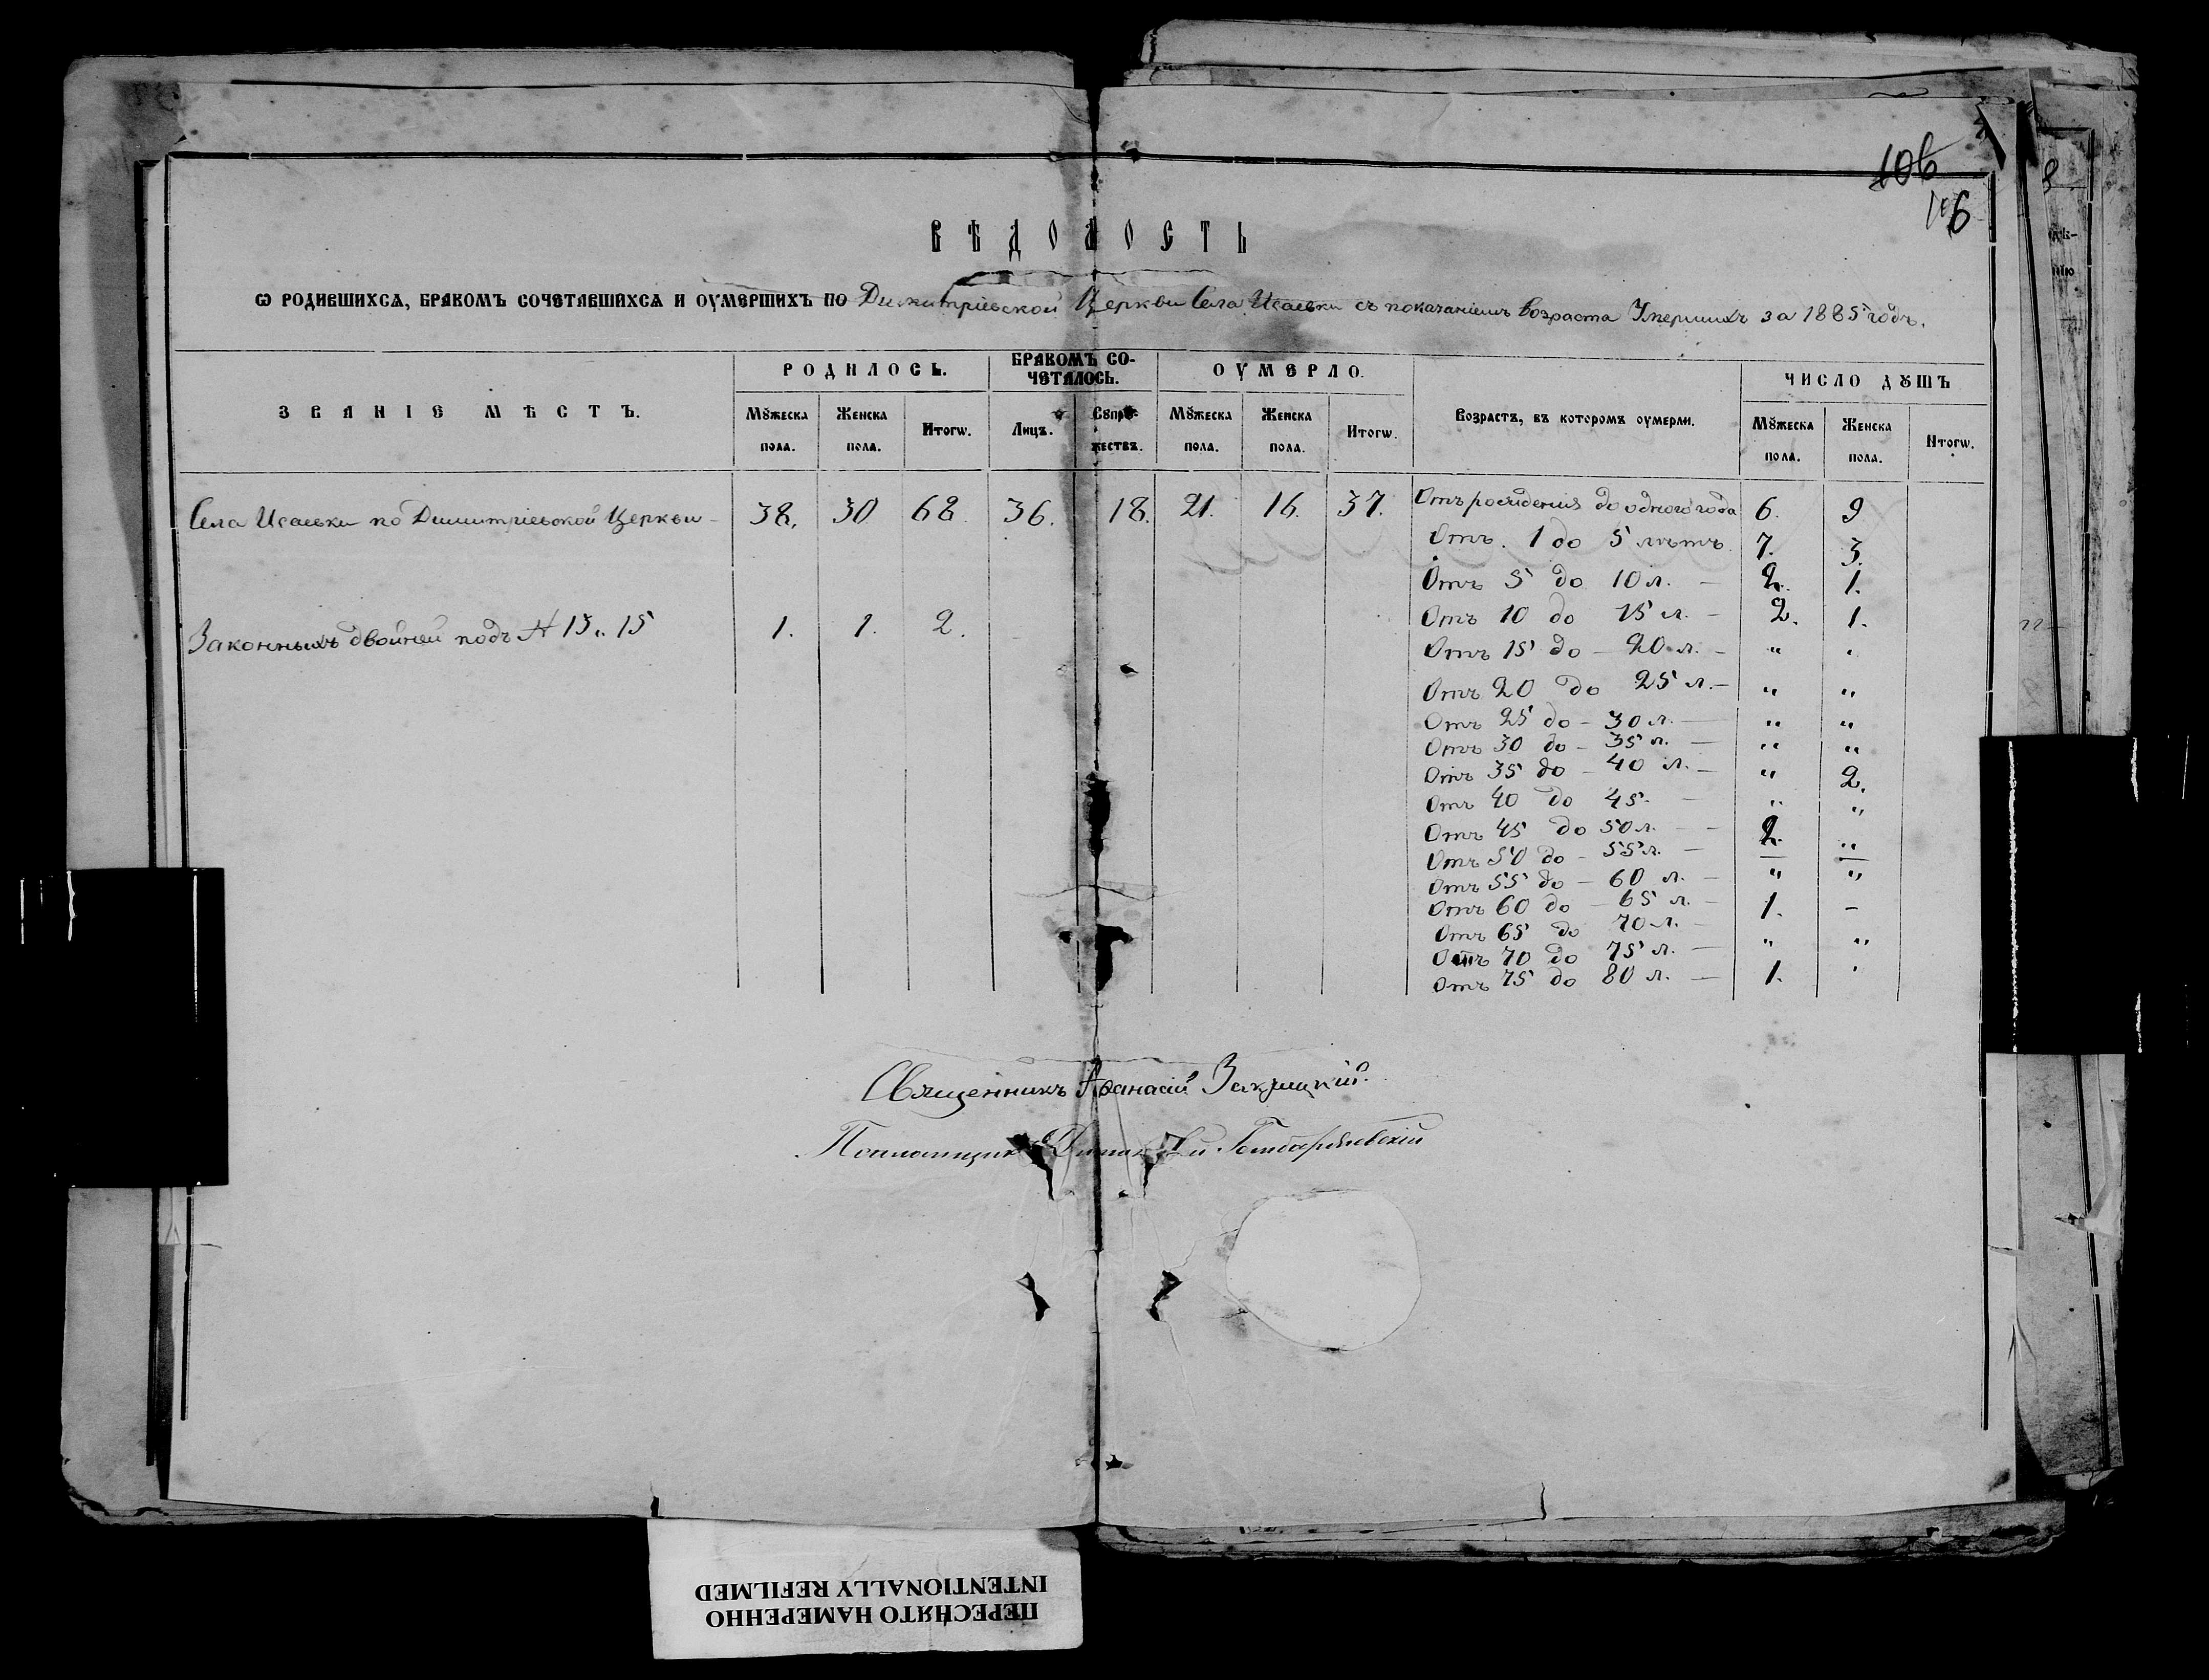 106
106
ВѢДОМОСТЬ
Ѡ РОДИВШИХСѦ, БРАКОМЪ СОЧЕТАВШИХСѦ И ОУМЕРШИХЪ ПО Димитріевской Церкви Села Исаевки съ показаніемъ возраста Умершихъ за 1885 годъ.
ЗВАНІЕ МѢСТЪ. РОДИЛОСЬ. БРАКОМЪ СОЧЕТАЛОСЬ. ОУМЕРЛО. Возрастъ, въ которомъ оумерли. ЧИСЛО ДꙊШЪ
Мꙋжеска пола. Женска пола. Итогѡ. Лицъ. Сꙋпрꙋжествъ. Мꙋжеска пола. Женска пола. Итогѡ. Мꙋжеска пола. Женска пола. Итогѡ.
Села Исаевки по Димитріевской Церкви – 38. 30 68. 36. 18. 21. 16. 37. Отъ рожденія до одного года 6. 9
Отъ 1 до 5 лѣтъ. 7. 3.
Отъ 5 до 10 л. — 2. 1.
Законныхъ двойней подъ № 13 „ 15 1. 1. 2. Отъ 10 до 15 л. – 2. 1.
Отъ 15 до – 20 л. – „ „
Отъ 20 до 25 л. – „ „
Отъ 25 до – 30 л. — „ „
Отъ 30 до – 35 л. — „ „
Отъ 35 до – 40 л. — „ 2.
Отъ 40 до 45. — „ „
Отъ 45 до 50 л. — 2. „
Отъ 50 до – 55 л. — — —
Отъ 55 до – 60 л. — „ „
Отъ 60 до – 65 л. – 1. –
Отъ 65 до 70 л. –
Отъ 70 до 75 л. — „ „
Отъ 75 до 80 л. — 1. „
Священникъ Афанасій
ПЕРЕСНЯТО НАМЕРЕННО
INTENTIONALLY REFILMED